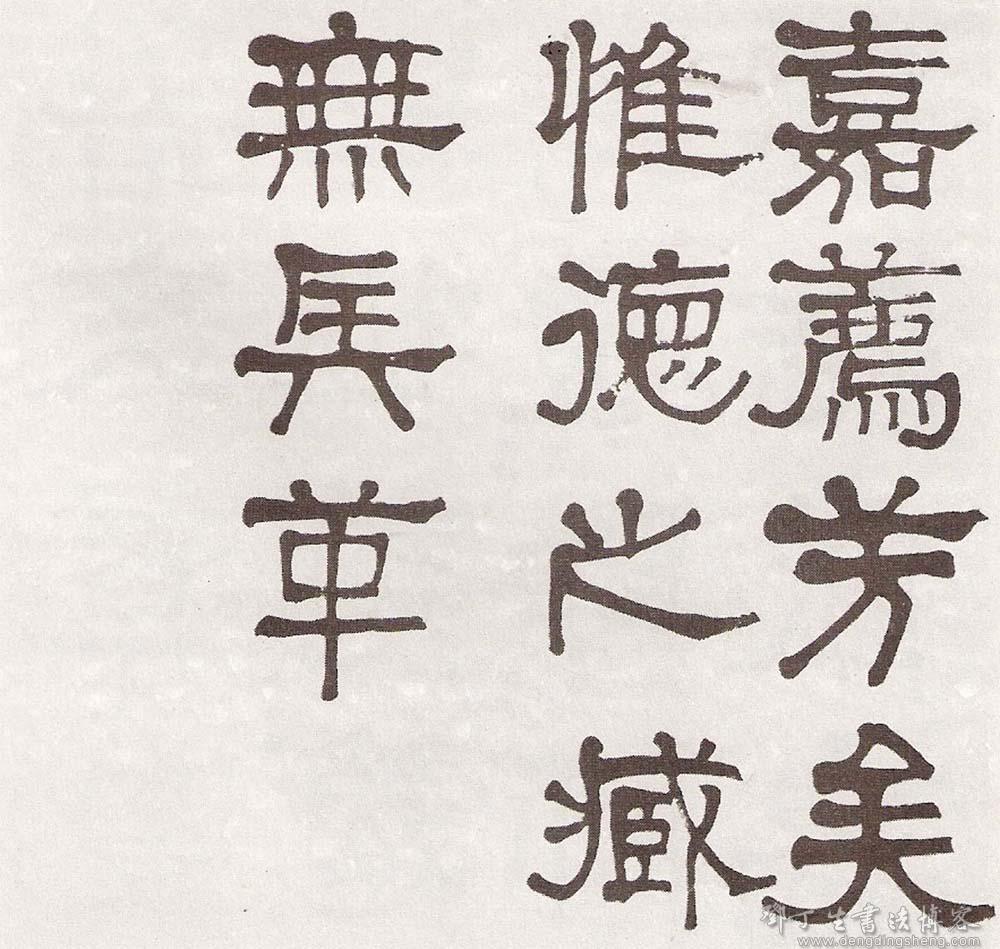 嘉薦芳美
惟德之臧
無兵革
鄧丁生書法博客
www.dengdingsheng.com